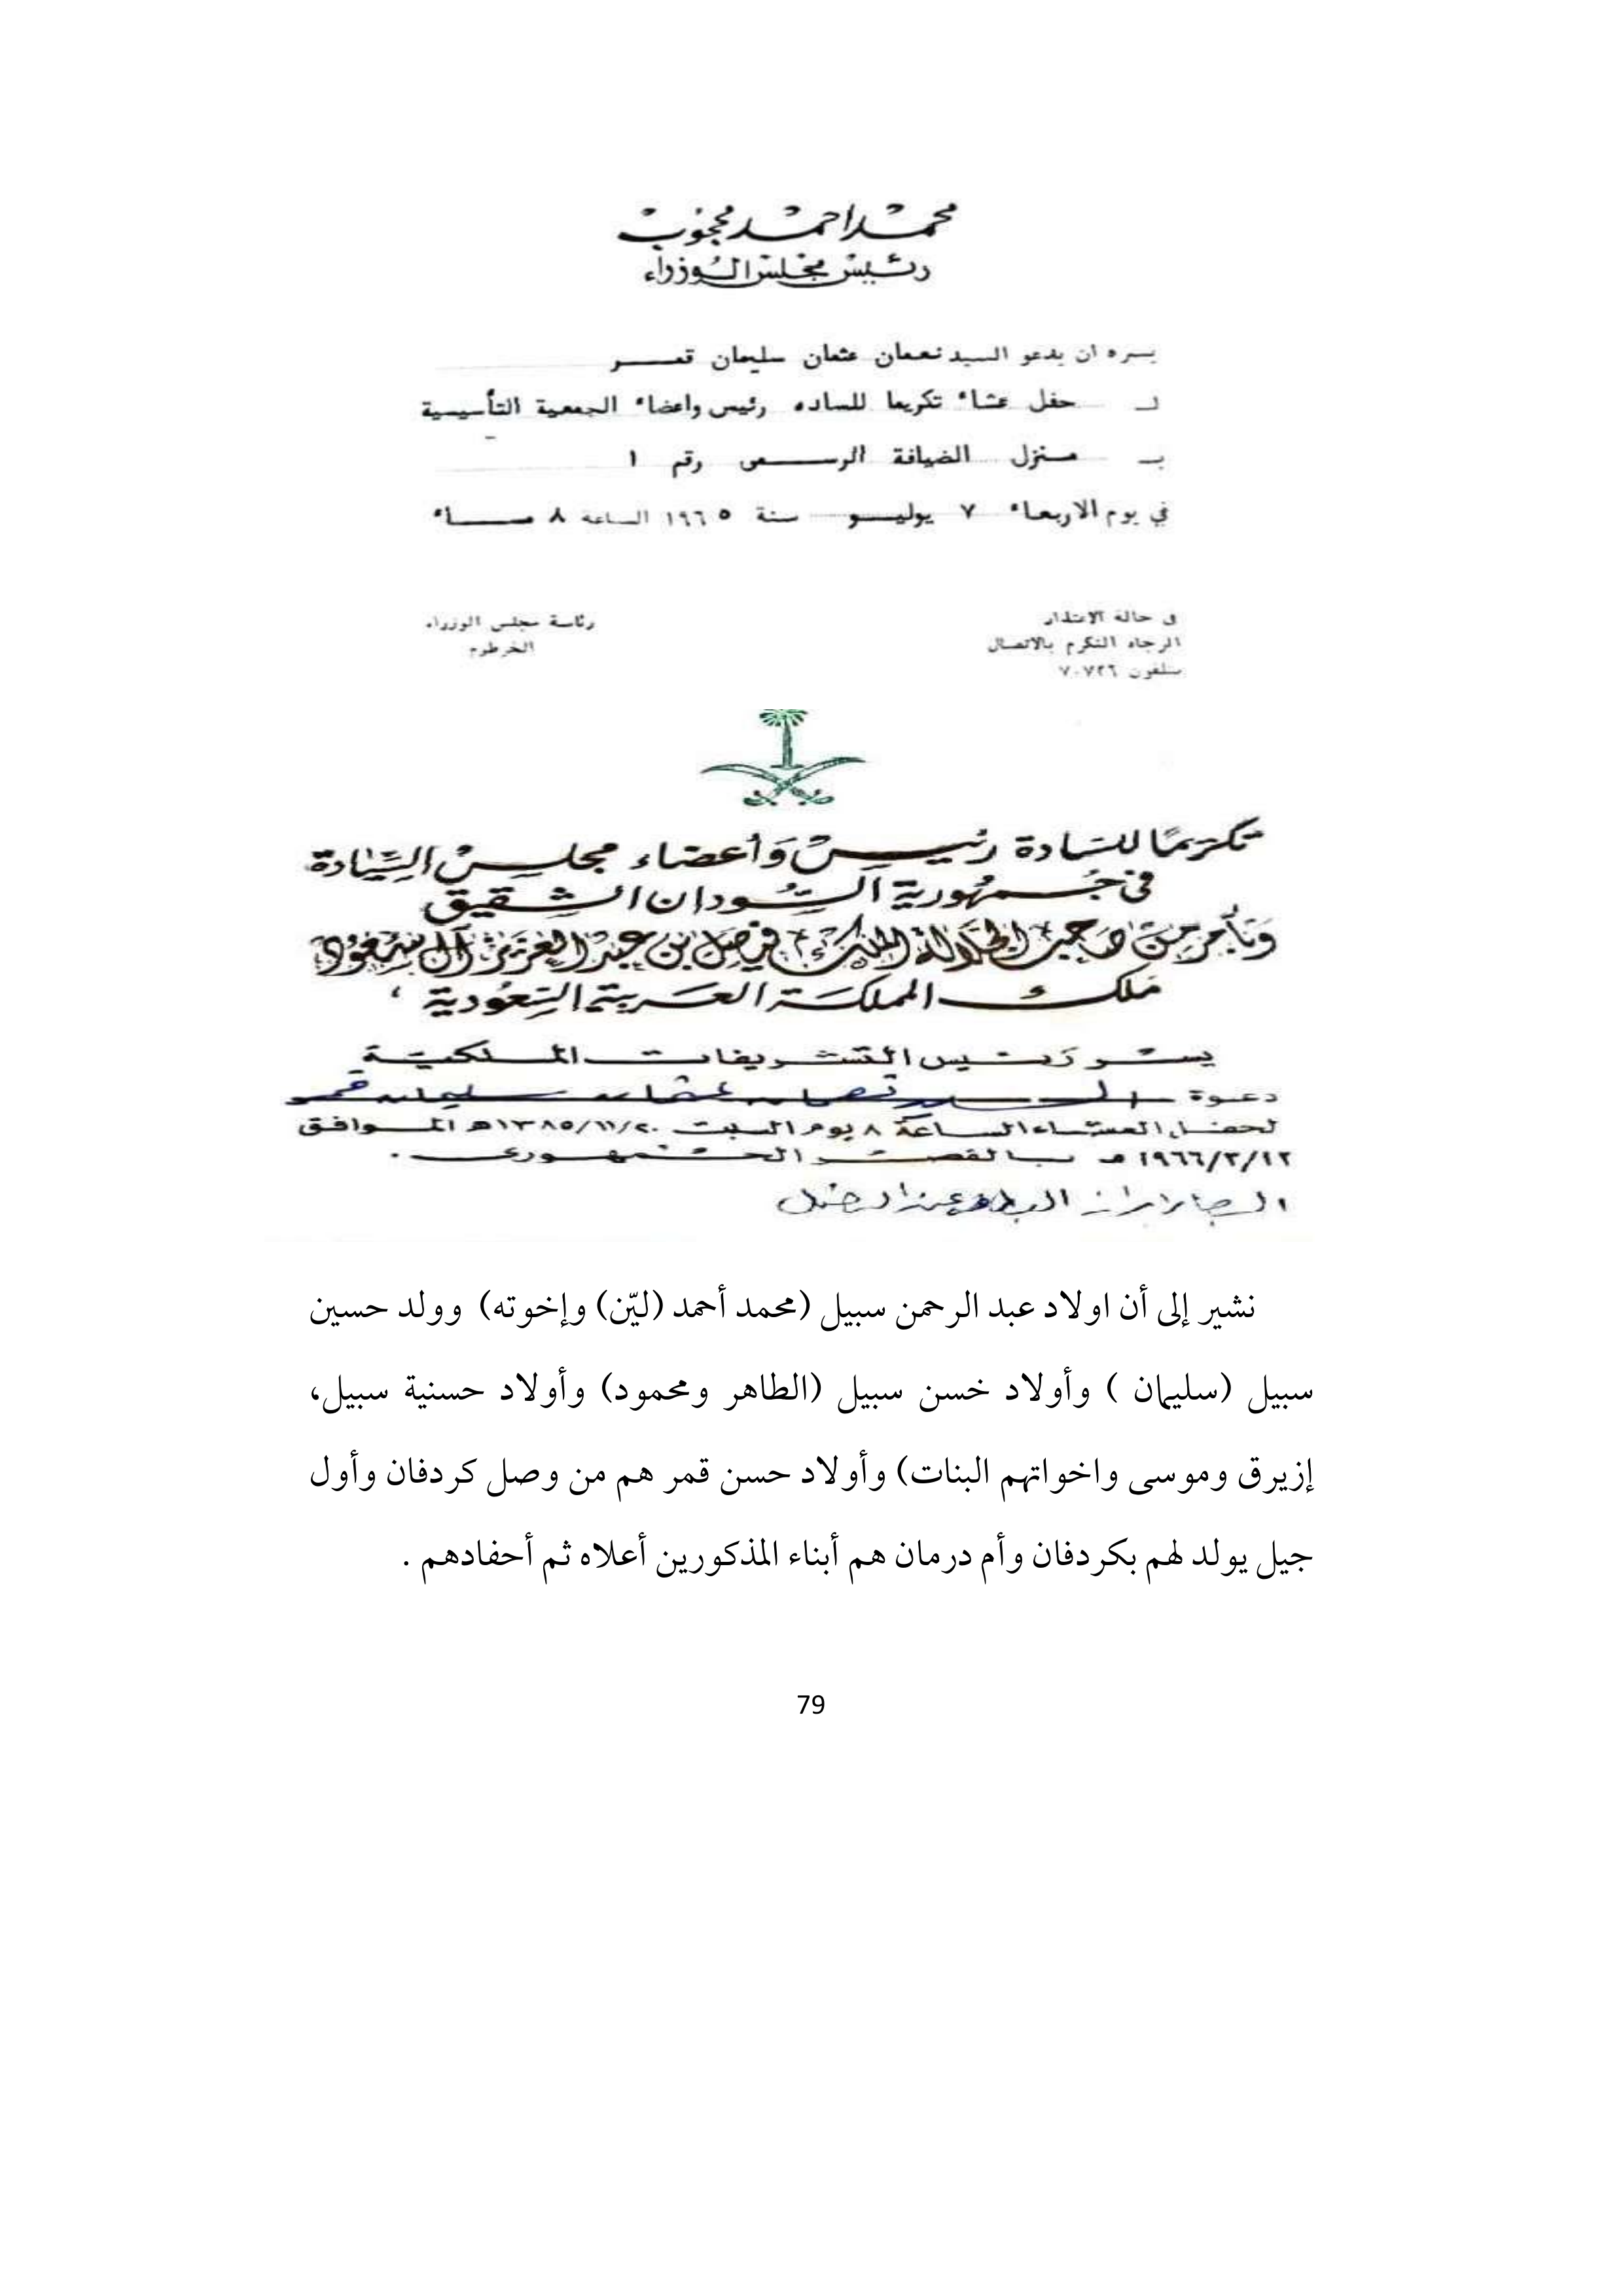 محمد احمد محجوب
رئيس مجلس الوزراء
يسره ان يدعو السيد نعمان عثمان سليمان قمر
لـ حفل عشاء تكريما للساده رئيس واعضاء الجمعية التأسيسية
بـ منزل الضيافة الرسمى رقم ١
في يوم الاربعاء ٧ يوليو سنة ١٩٦٥ الساعة ٨ مساء
فى حالة الاعتذار
الرجاء التكرم بالاتصال
بتلفون ٧٠٧٢٦
رئاسة مجلس الوزراء
الخرطوم
تكريمًا للسادة رئيس وأعضاء مجلس السيادة
في جمهورية السودان الشقيق
وبأمر من صاحب الجلالة الملك فيصل بن عبد العزيز آل سعود
ملك المملكة العربية السعودية ،
يسر رئيس التشريفات الملكية
دعوة السيد نعمان عثمان سليمان قمر
لحفل العشاء الساعة ٨ يوم السبت ١٣٨٥/١١/٢٠هـ الموافق
١٩٦٦/٣/١٢م بالقصر الجمهورى .
نشير إلى أن اولاد عبد الرحمن سبيل (محمد أحمد (ليّن) وإخوته) وولد حسين
سبيل (سليمان ) وأولاد خسن سبيل (الطاهر ومحمود) وأولاد حسنية سبيل،
إزيرق وموسى واخواتهم البنات) وأولاد حسن قمر هم من وصل كردفان وأول
جيل يولد لهم بكردفان وأم درمان هم أبناء المذكورين أعلاه ثم أحفادهم .
79